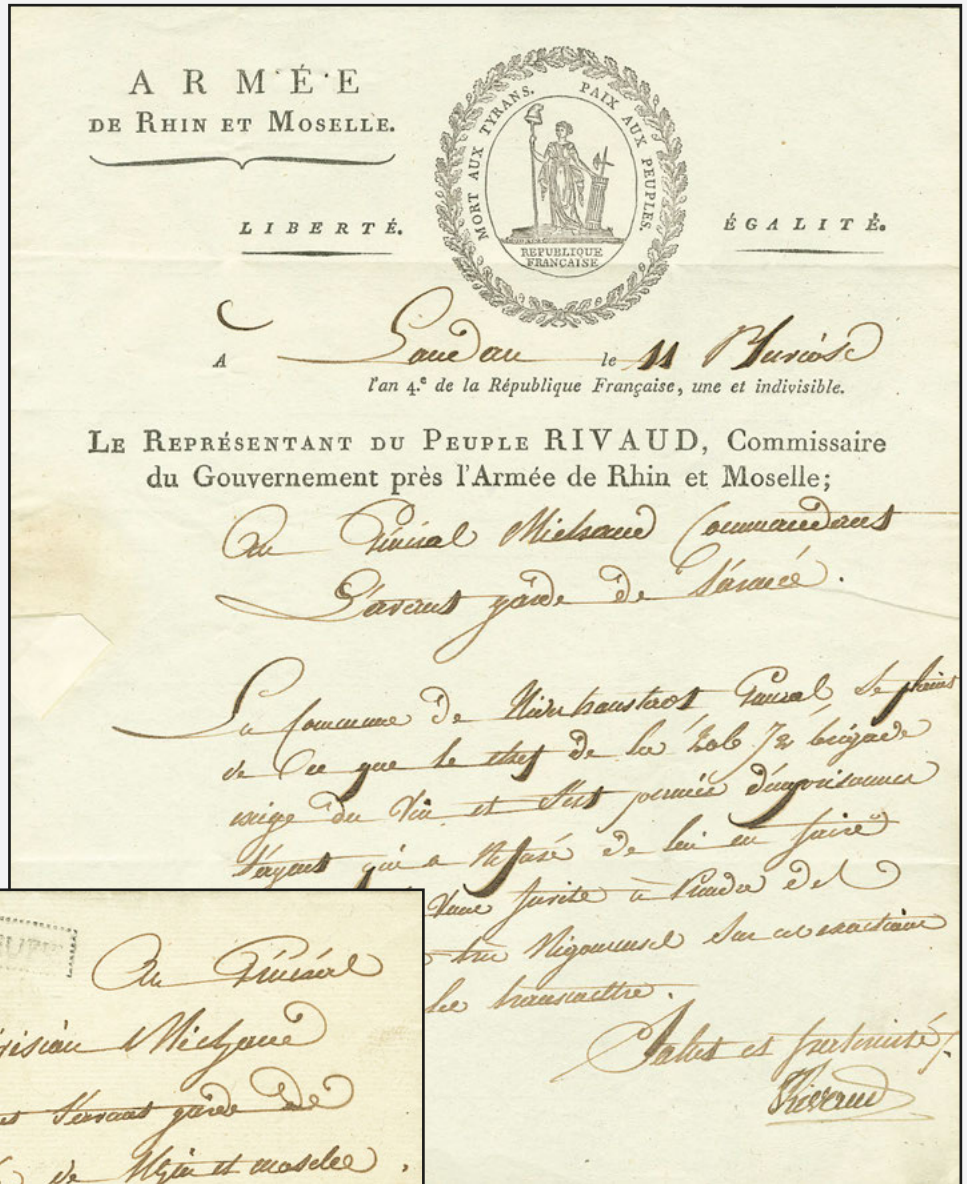 ARMÉE
DE RHIN ET MOSELLE.
MORT AUX TYRANS. PAIX AUX PEUPLES.
LIBERTÉ. ÉGALITÉ.
REPUBLIQUE
FRANCAISE
A Landau le 11 Pluviose
l'an 4.e de la République Française, une et indivisible.
LE REPRÉSENTANT DU PEUPLE RIVAUD, Commissaire
du Gouvernement près l'Armée de Rhin et Moselle;
Au Général Michaud Commandant
L'avant garde de L'armée.
La Commune de Général Se plaint
de Ce que le chef de la brigade
exige du Vin et S'est permis d'emprisonner
l'agent qui a Refusé de lui en faire
Vous invite à Prendre des
Rigoureuse Sur ces exactions
les transmettre.
Salut et fraternité
Rivaud
Au Général
Michaud
L'avant garde de
de Rhin et moselle.